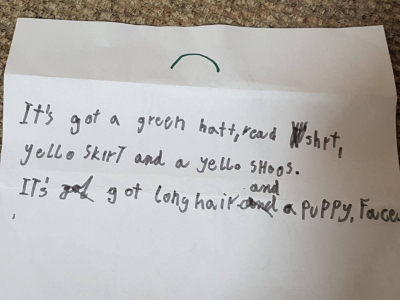 It's got a green hatt, read shrt,
yello SKIRT and a yello SHOOS.
IT'S got long hair and a PUPPY, Face